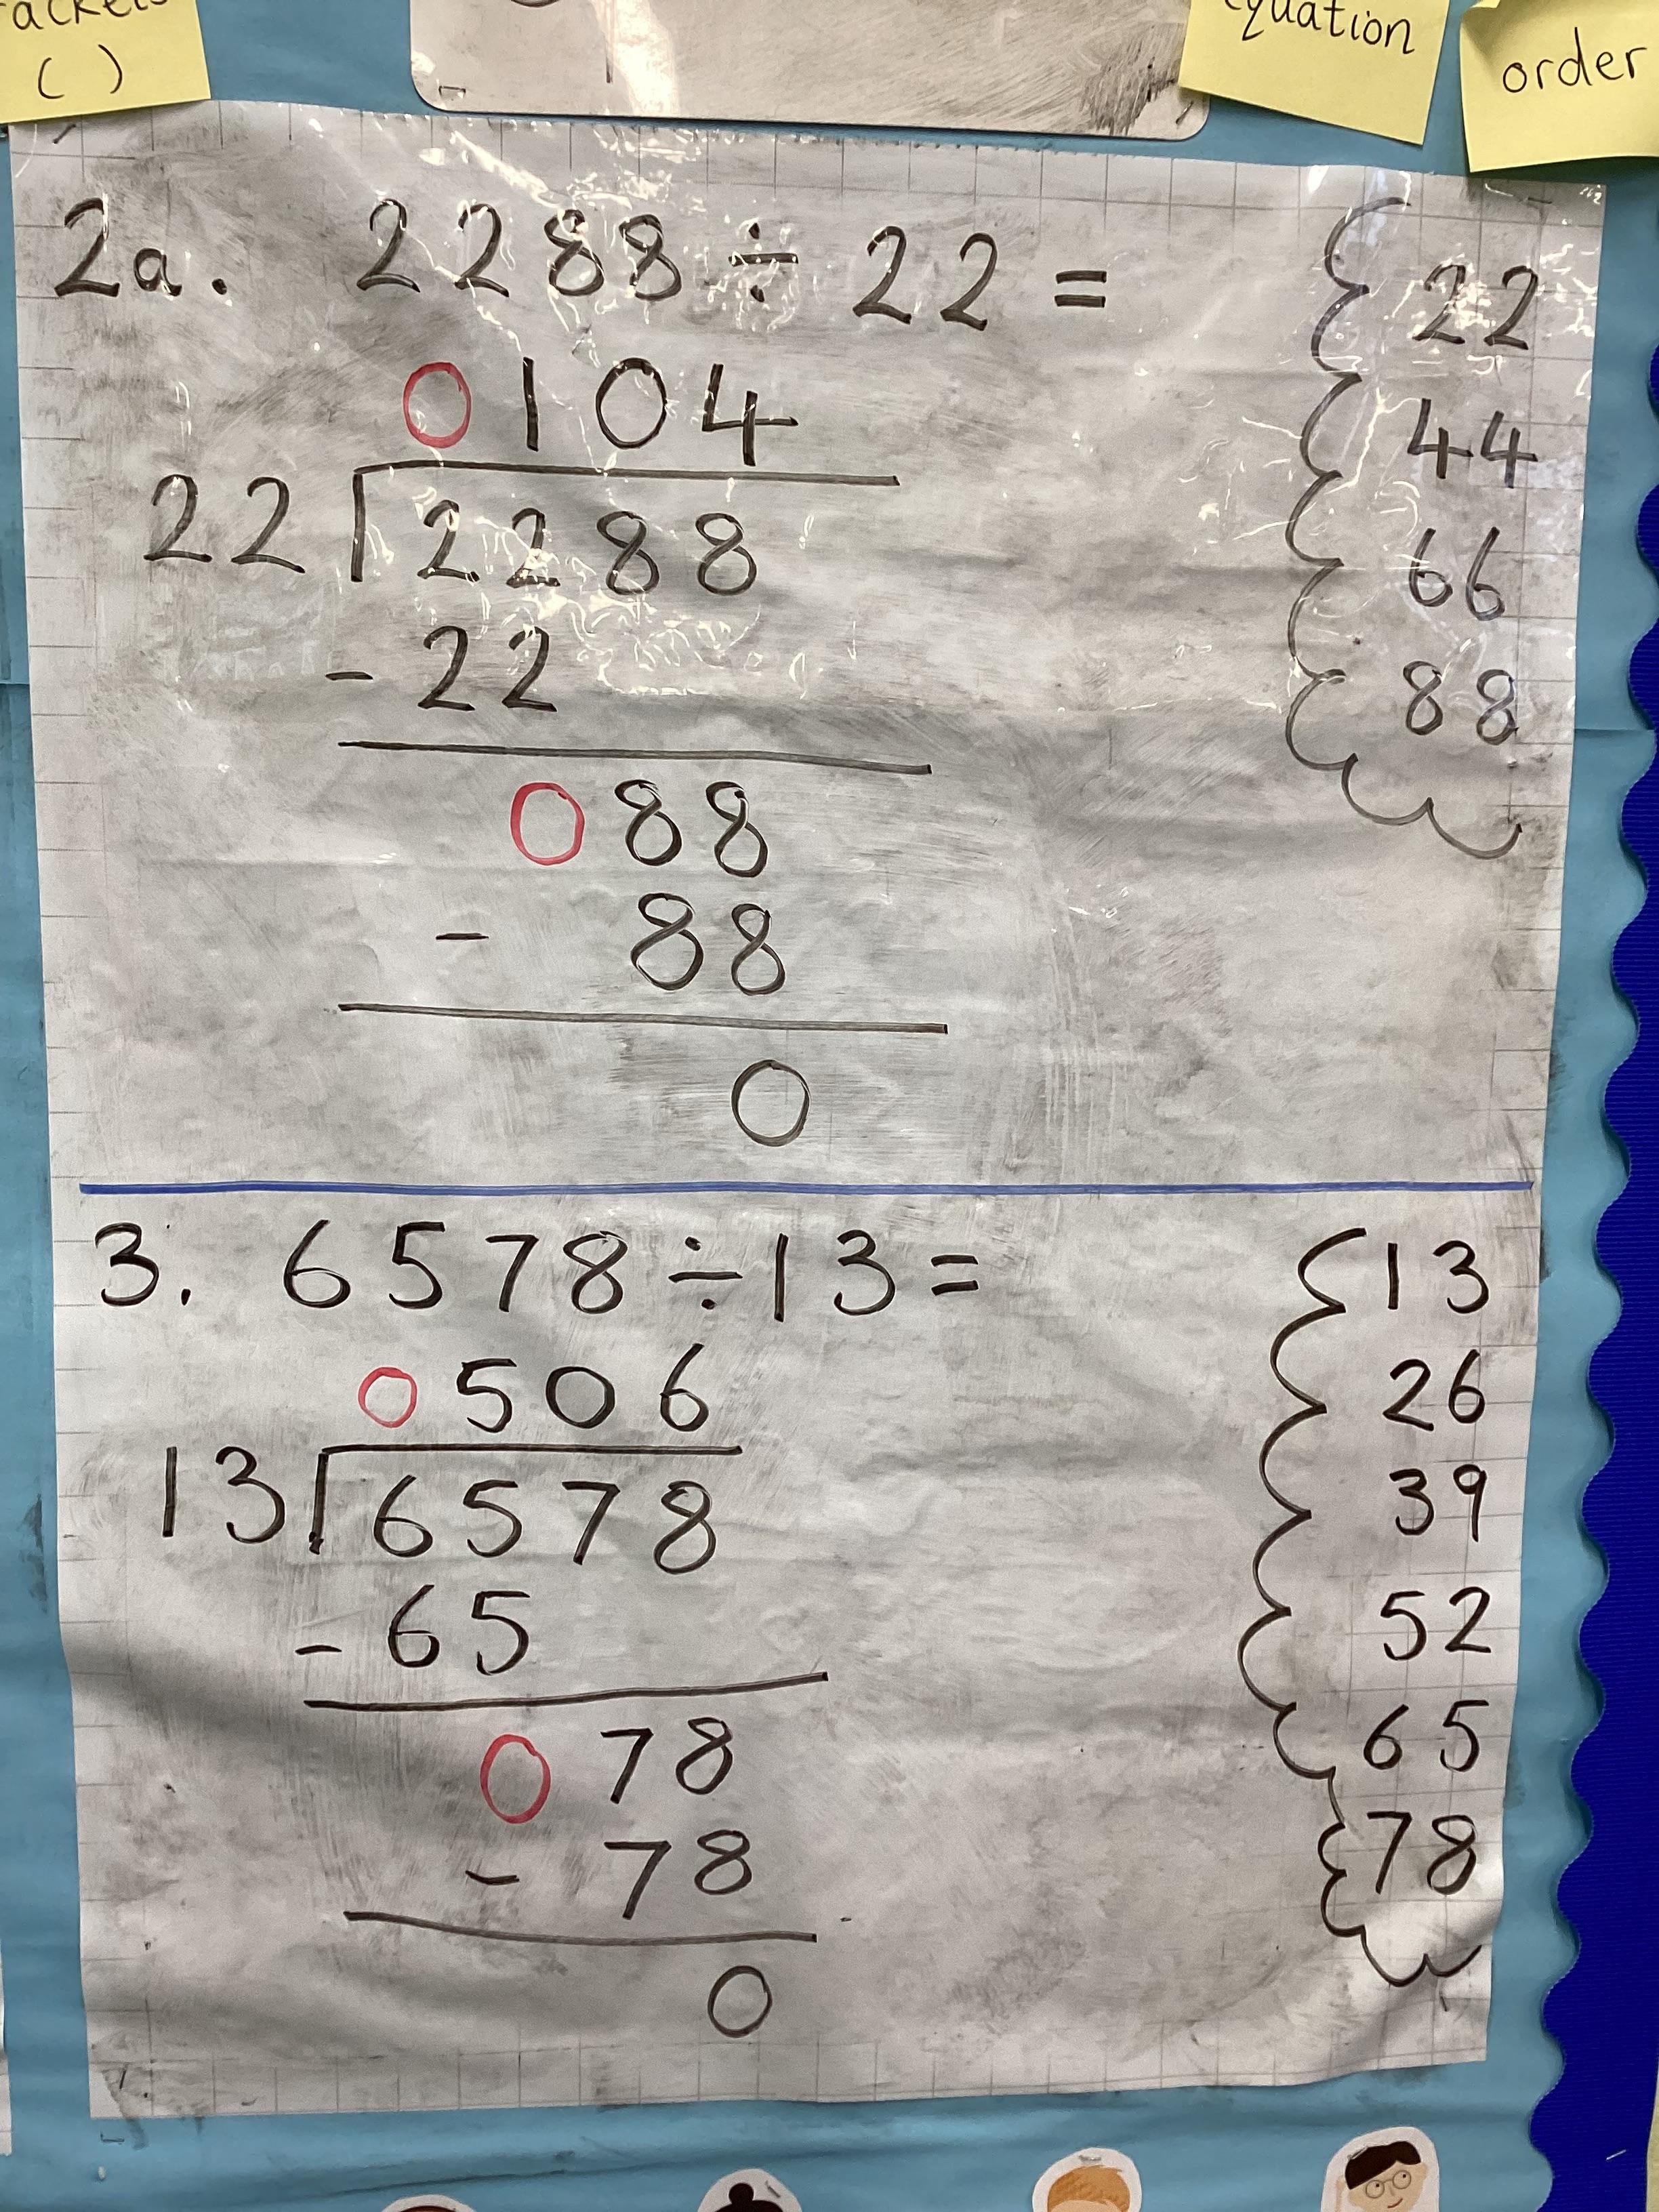 ( )
equation
order
2a. 2288 ÷ 22 =
0104
22 2288
- 22
088
- 88
0
22
44
66
88
3. 6578 ÷ 13 =
0506
13 6578
- 65
078
- 78
0
13
26
39
52
65
78